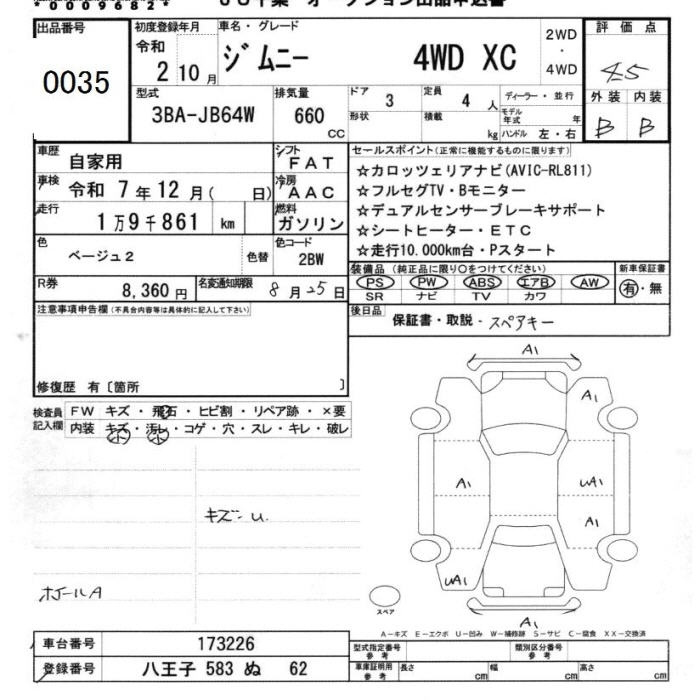 *00096824*
出品番号
0035
初度登録年月
令和
2 10月
車名・グレード
ジムニー 4WD XC
2WD
・
4WD
評価点
4.5
外装 内装
B B
型式
3BA-JB64W
排気量
660
CC
ドア 3
形状
定員 4 人
積載 kg
ディーラー・並行
モデル年式 年
ハンドル 左・右
車歴 自家用
車検 令和 7年12月( 日)
走行 1万9千861 km
シフト FAT
冷房 AAC
燃料 ガソリン
色 ベージュ2 色替
色コード 2BW
R券 8,360円
名変通知期限 8月25日
セールスポイント(正常に機能するものに限ります)
☆カロッツェリアナビ(AVIC-RL811)
☆フルセグTV・Bモニター
☆デュアルセンサーブレーキサポート
☆シートヒーター・ETC
☆走行10.000km台・Pスタート
装備品(純正品に限り○をつけてください)
PS PW ABS エアB AW
SR ナビ TV カワ
新車保証書
有・無
後日品
保証書・取説・スペアキー
注意事項申告欄(不具合内容等は具体的に記入して下さい)
修復歴 有〔箇所 〕
検査員記入欄
FW キズ・飛石・ヒビ割・リペア跡・×要
内装 キズ・汚レ・コゲ・穴・スレ・キレ・破レ
小 小
キズ U.
ホイールA
A1
A1
A1
UA1
A1
UA1
A1
スペア
A-キズ E-エクボ U-凹み W-補修跡 S-サビ C-腐食 XX-交換済
車台番号 173226
登録番号 八王子 583 ぬ 62
型式指定番号 参考
類別区分番号 参考
車庫証明用 参考
長さ cm 幅 cm 高さ cm